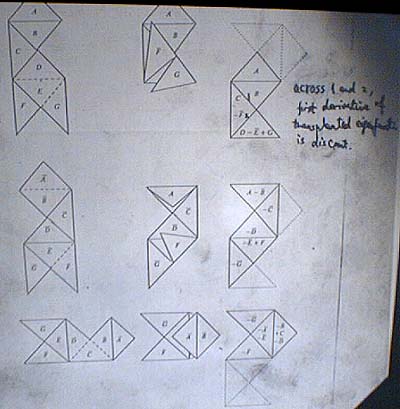 A
B
C
D
E
F G
A
B
F
G
A
C B
D - E + G
across 1 and 2,
first derivative of
transplanted eigenfunction
is discont.
A
B
C
D
E
G F
A
C
D
F
G
A - B
-C
-D
-E + F
-G
G
E D B A
F C
G
A B
F
-G
-F